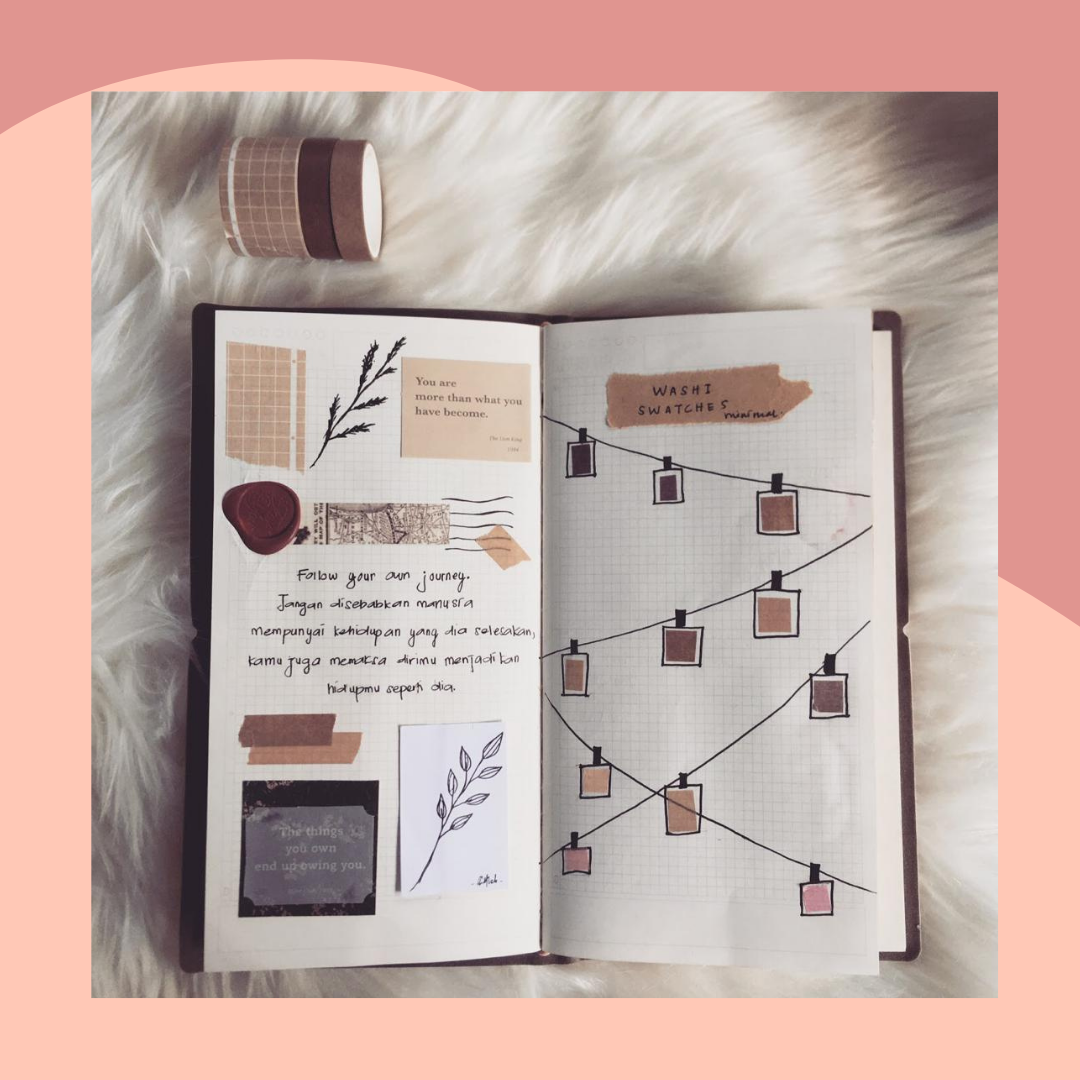 You are
more than what you
have become.
The Lion King
Follow your own journey.
Jangan disebabkan manusia
mempunyai kehidupan yang dia selesakan,
kamu juga memaksa dirimu menjadikan
hidupmu seperti dia.
"The things
you own
end up owing you.
WASHI
SWATCHES
minimal.